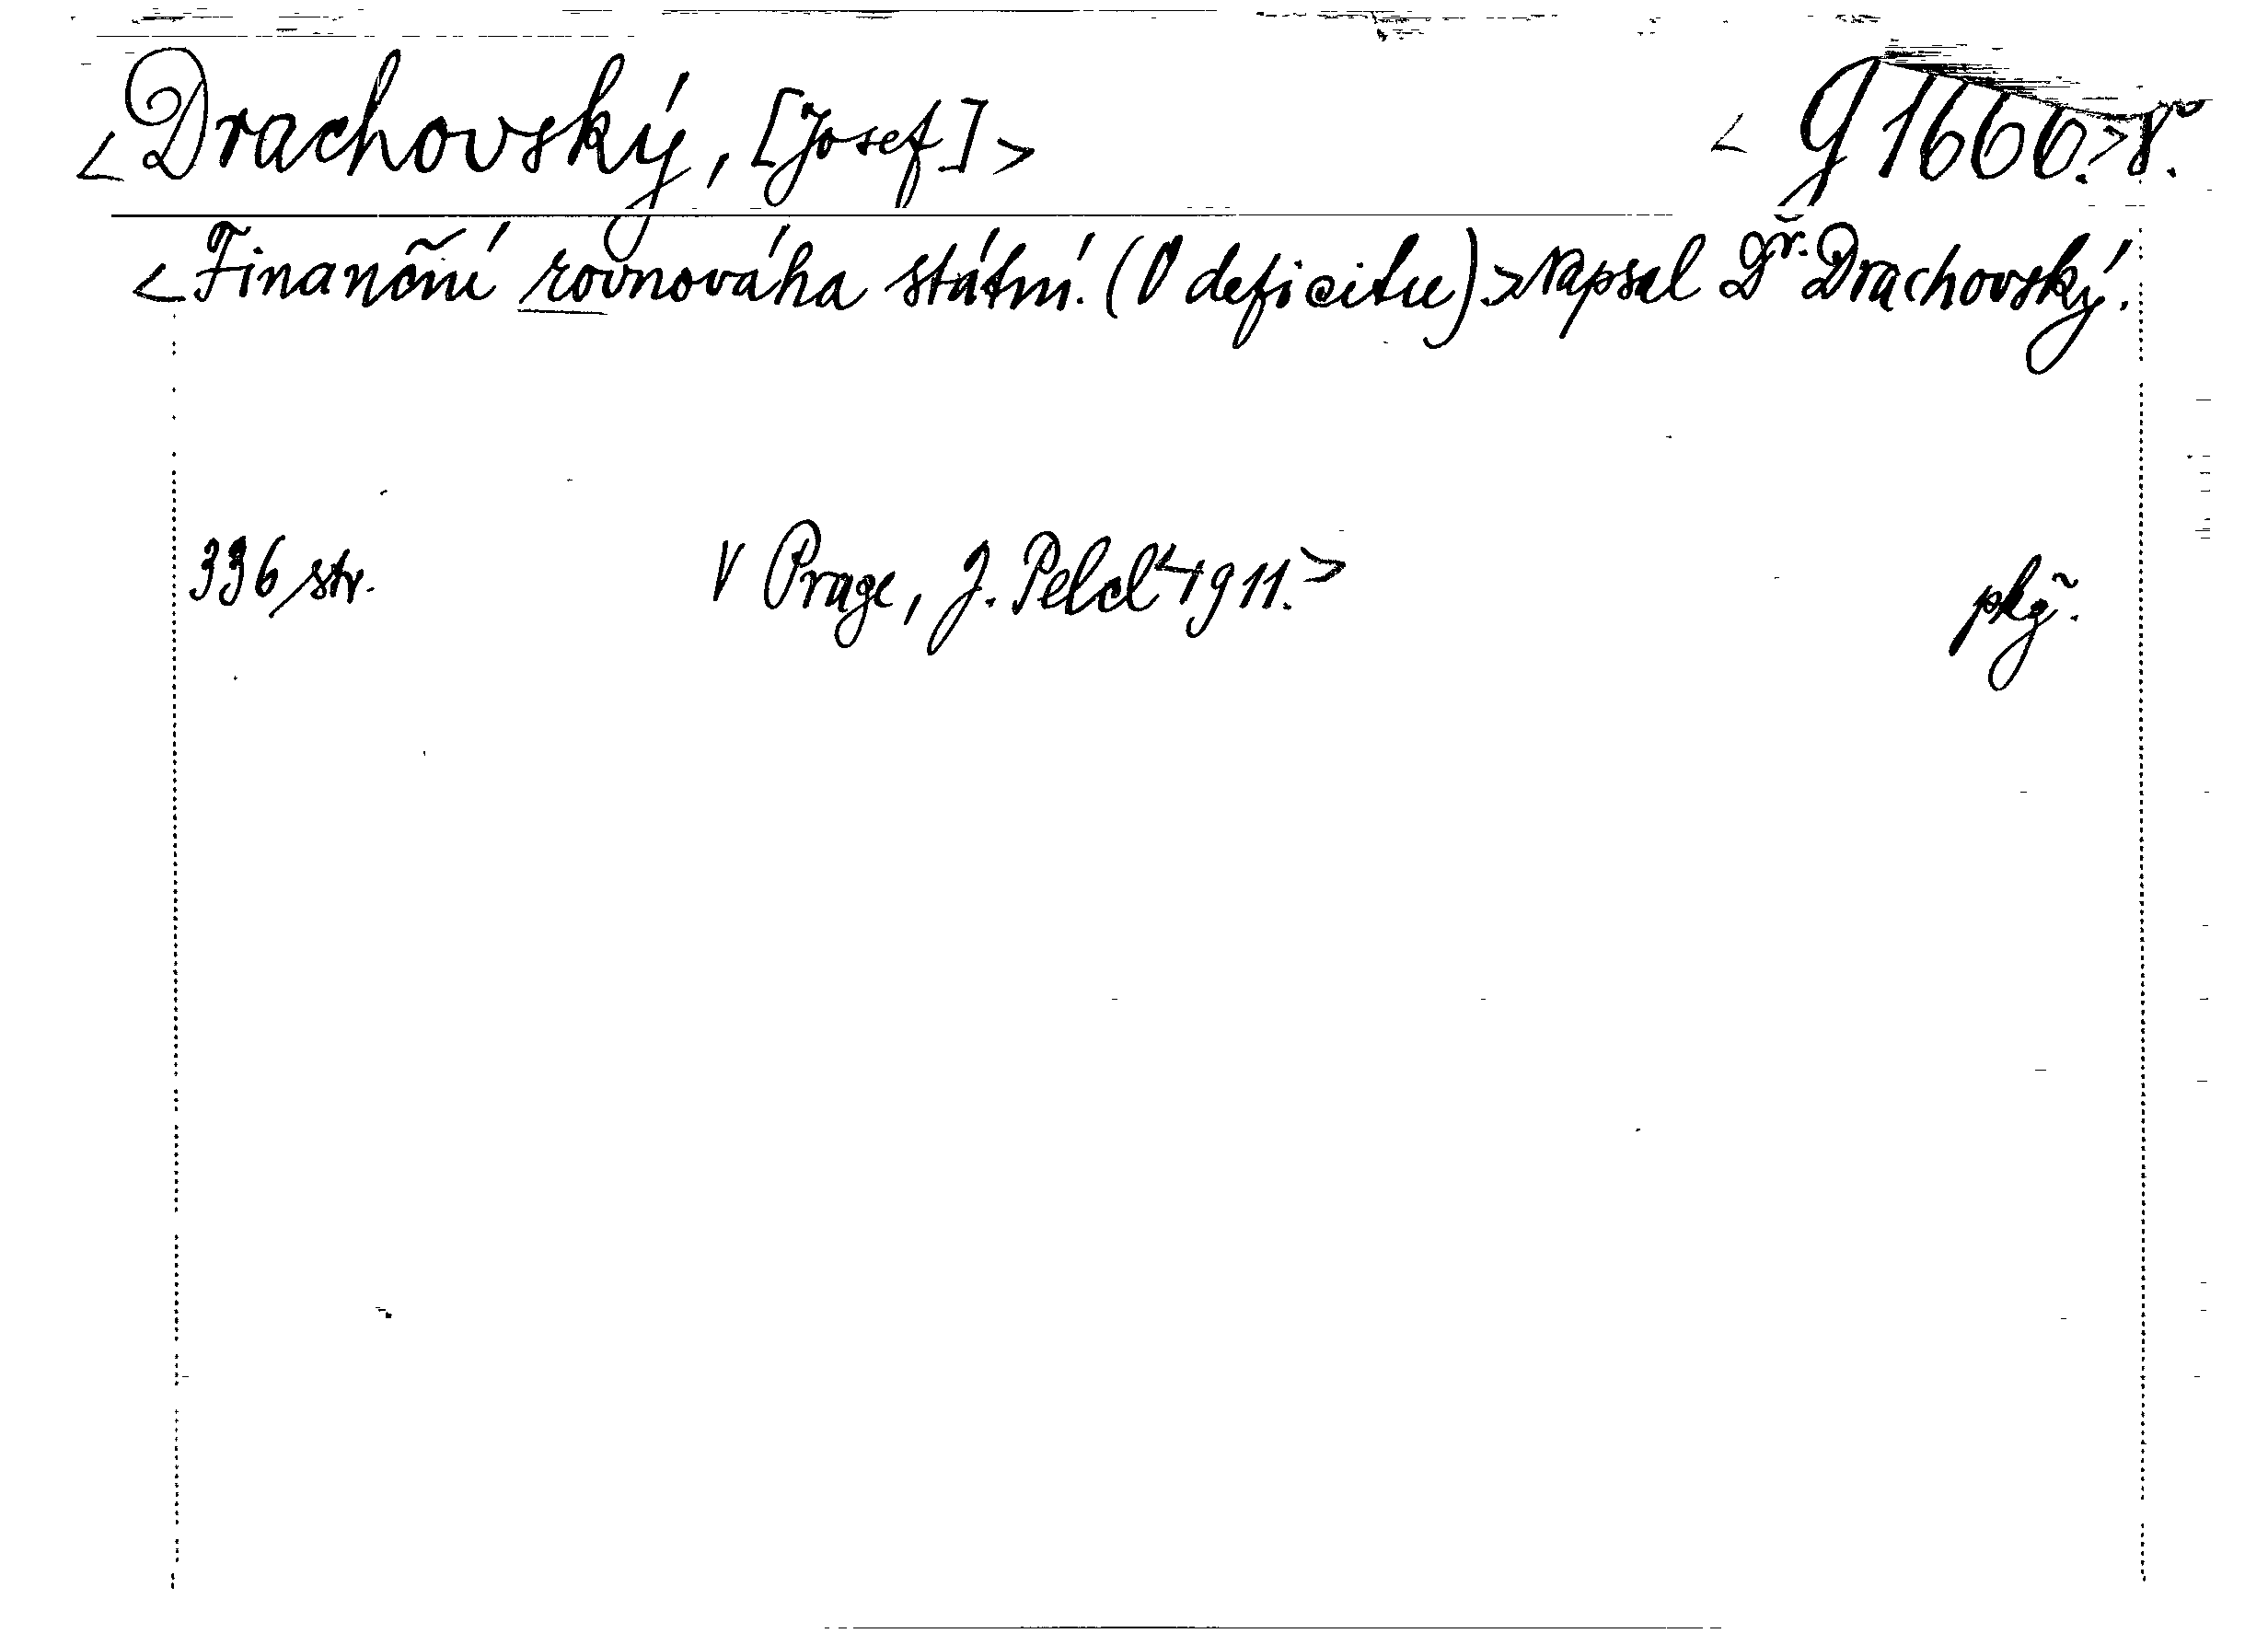 <Drachovský, [Josef]> <g 1666.>8°.
<Finanční rovnováha státní. (O deficitu)> Napsal Dr. Drachovský.
336 str. V Praze, J. Pelcl <1911.> pkž.